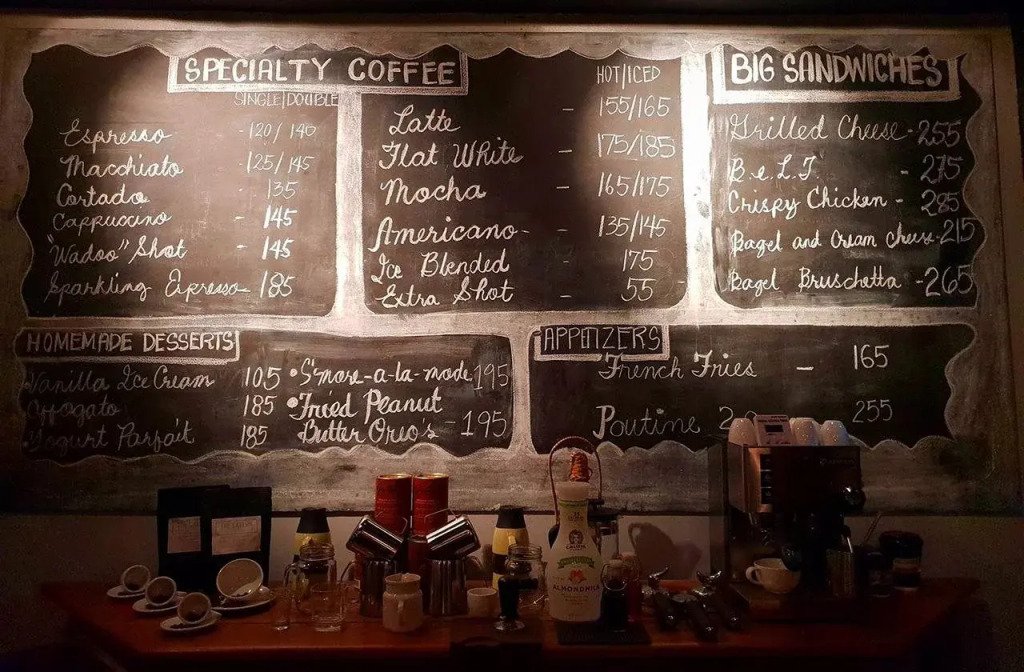 SPECIALTY COFFEE
SINGLE/DOUBLE
Espresso - 120/140
Macchiato - 125/145
Cortado - 135
Cappuccino - 145
"Wadoo" Shot - 145
Sparkling Espresso - 185
HOT/ICED
Latte - 155/165
Flat White - 175/185
Mocha - 165/175
Americano - 135/145
Ice Blended 175
Extra Shot - 55
BIG SANDWICHES
Grilled Cheese - 255
B.L.T. - 275
Crispy Chicken - 285
Bagel and Cream cheese - 215
Bagel Bruschetta - 265
HOMEMADE DESSERTS
Vanilla Ice Cream 105
Affogato 185
Yogurt Parfait 185
• S'more-a-la-mode 195
• Fried Peanut
Butter Oreo's - 195
APPETIZERS
French Fries - 165
Poutine 255
ALMONDMILK